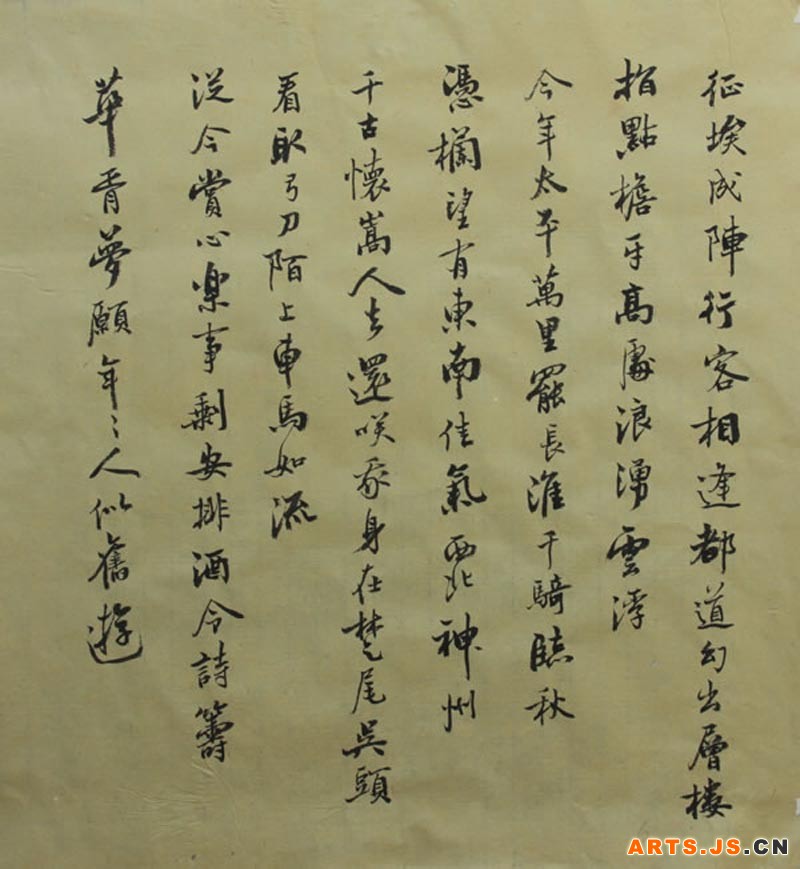 征埃成陣行客相逢都道幻出層樓
指點檐牙高處浪湧雲浮
今年太平萬里罷長淮千騎臨秋
憑欄望有東南佳氣西北神州
千古懷嵩人去還咲我身在楚尾吳頭
看取弓刀陌上車馬如流
從今賞心楽事剩安排酒令詩籌
華胥夢願年〻人似舊遊
ARTS.JS.CN